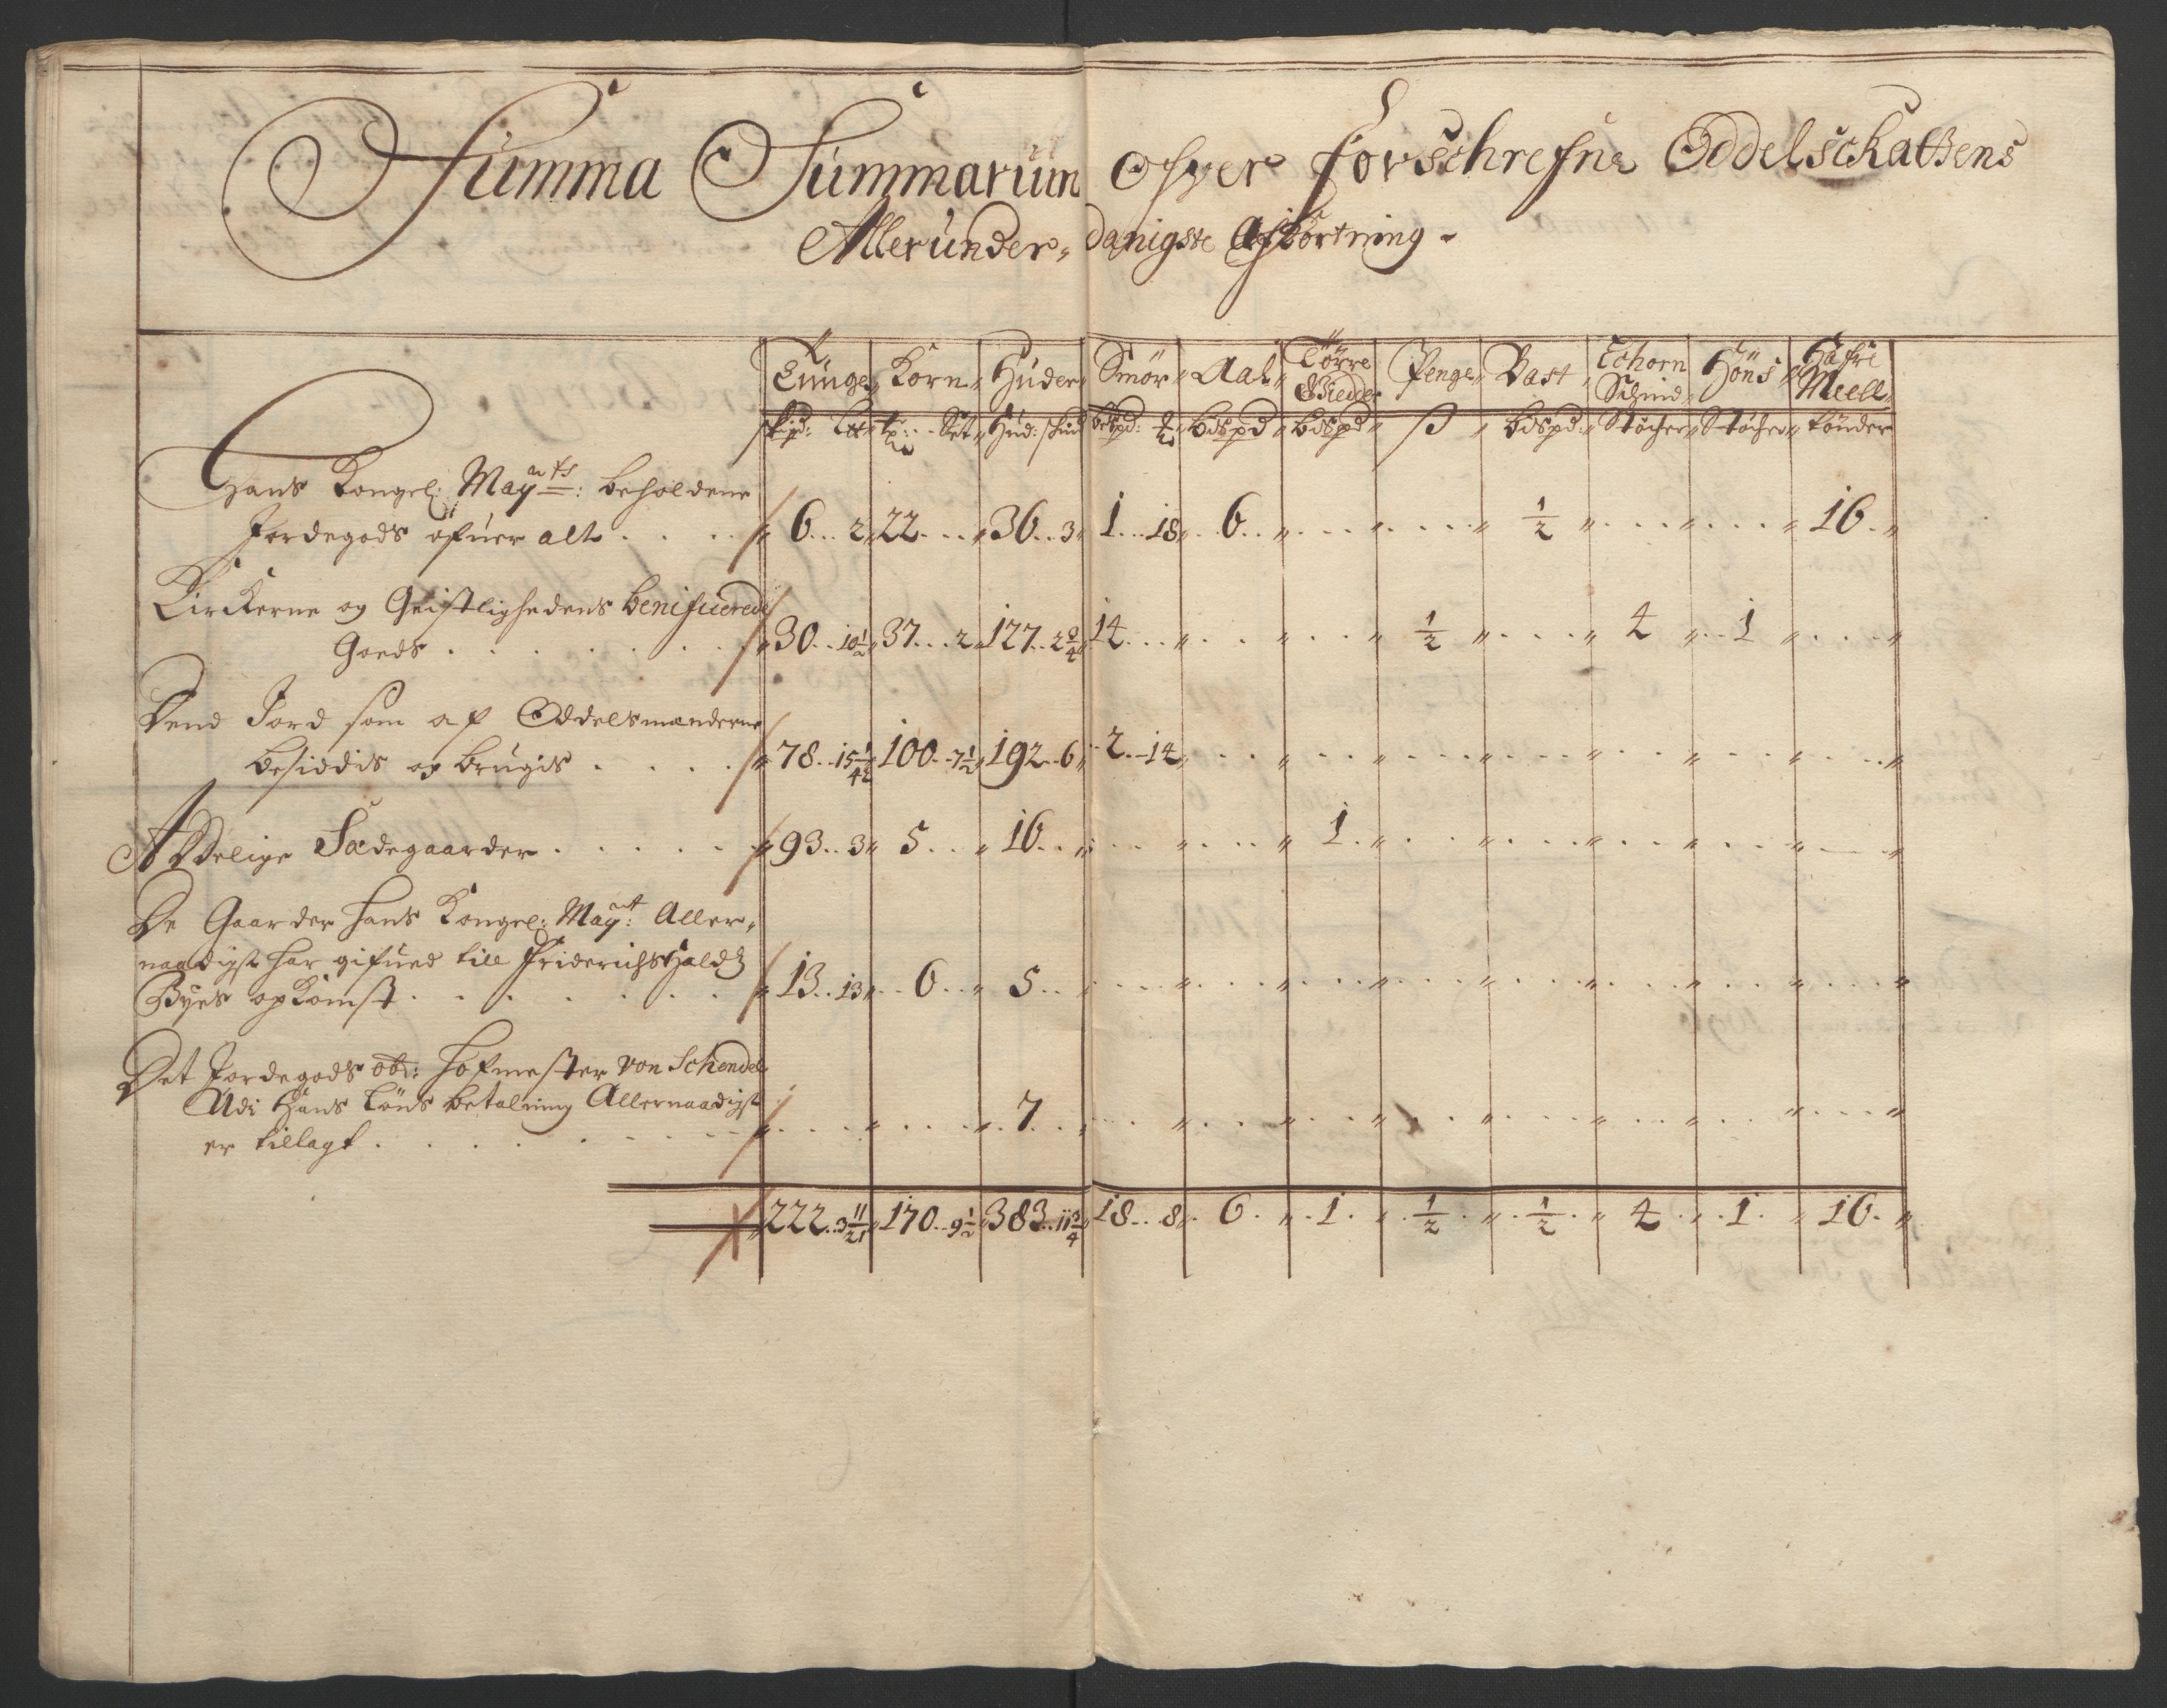 Summa Summarum Ofver forschrefne Oddelschattens
Allerunder„ danigste Afkortning
Tunge„ Korn„ Huder„ Smör„ Aal„ Törre Giedder Penge„ Bast„ Echorn Schind„ Höns„ Hafre Meell„
Skpd: L℔„ tr: Set„ Hud: schind bdspd: ℔„ bdspd„ bdspd„ ß„ bdspd„ Stöcher„ Stöcher„ tönder
Hans Kongel: Mayts: beholdene
Jordegods ofuer alt . . . . 6... 2„ 22...„ 36... 3„ 1... 18„ 6..„ ...„ ...„ ½„ ...„ ...„ 16.„
Kirkerne og Geistlighedens benificerede
Goeds . . . . . . 30.. 10½„ 37... 2„ 127.. 2¾„ 14...„ ...„ ...„ ½„ ...„ 4„ 1„ ...„
Dend Jord som af Oddelsmenderne
besiddis og brugis . . . . 78.. 15 100.. 7½„ 192.. 6„ 2.. 14„
Addelige Sædegaarder . . . . . 93.. 3„ 5..„ 16..„ ...„ ...„ 1.„
De Gaarder hans Kongel: Mayt: Aller„
naadigst har gifued till Friderichshalds
Byes opkomst . . . . . . 13.. 13„ 6..„ 5..
Det Jordegods Hofmester von Schendel
Udi Hans Löns betalning Allernaadigst
er tillagt . . . . . . 7..
222.. 3 11/21„ 170.. 9½„ 383.. 11¾ 18.. 8„ 6.„ 1.„ ½.„ ½.„ 4„ 1.„ 16.„